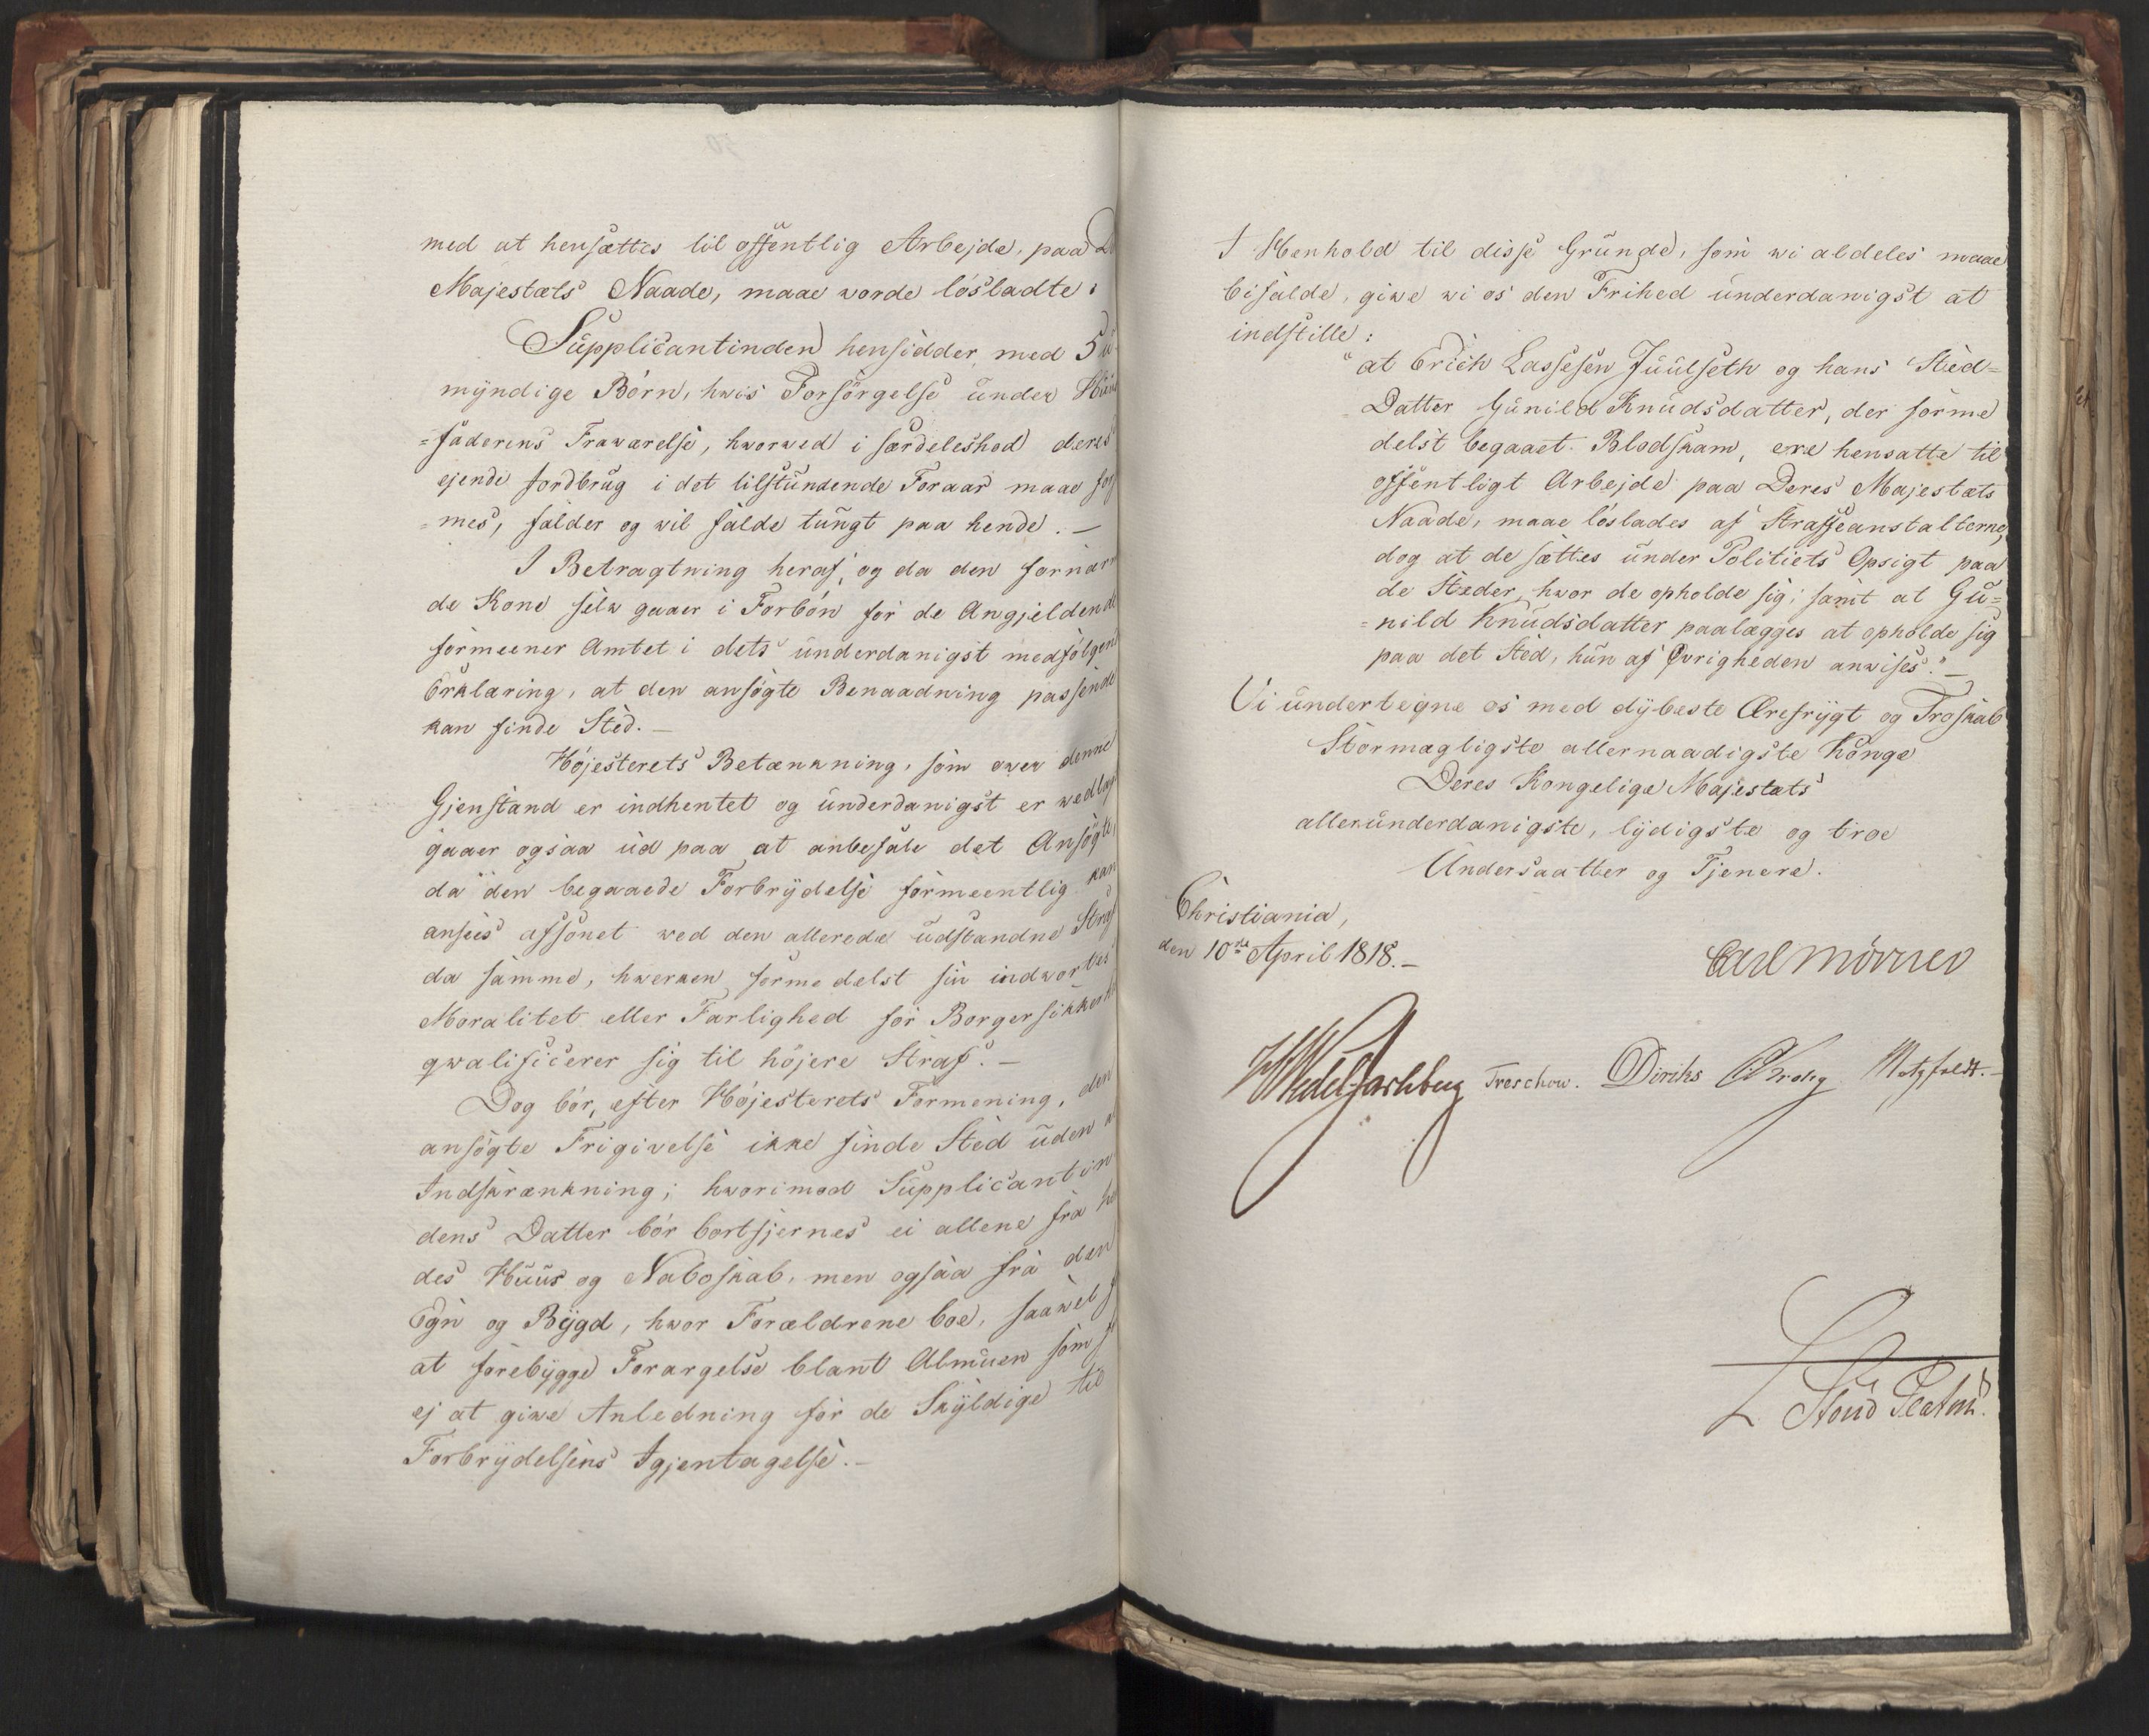 med at hensættes til offentlig Arbejde, paa
Majestæts Naade, maae worde løsladte:
Supplicantinden hensidder med 5
myndige Børn, hwis Forsørgelse under
=faderens Frawærelse, hworwed i særdeleshed deres
ejende Jordbrug i det tilstundende Foraar maae
=mes, falder og wil falde tungt paa hende. —
I Betragtning heraf, og da den
de Kone selw gaaer i Forbøn for de Angjeldende
formeener Amtet i dets underdanigst
Erklæring, at den ansøgte Benaadning passende
kan finde Sted. —
Højesterets Betænkning, som ower denne
Gjenstand er indhentet og underdanigst er
gaaer ogsaa ud paa at anbefale det Ansøgte,
da den begaaede Forbrydelse formeentlig kan
ansees afsonet wed den allerede udstandne Straf
da samme, hwerken formedelst sin indwortes
Moralitet eller Farlighed for
qwalificerer sig til højere Straf. —
Dog bør, efter Højesterets Formening, den
ansøgte Frigivelse ikke finde Sted uden
Indskrænkning; hworimod Supplicantin
dens Datter bør bortfjernes ei allene fra
des Huus og Naboskab, men ogsaa fra den
Egn og Bygd, hwor Forældrene boe, saawel
at forebygge Forargelse blant Almuen som
ej at giwe Anledning for de Skyldige til
Forbrydelsens Igjentagelse. —
I Henhold til disse Grunde, som wi aldeles maae
bifalde, giwe wi os den Frihed underdanigst at
indstille:
"at Erich Lassesen Juulseth og hans Sted=
Datter Gunild Knudsdatter, der forme
delst begaaet Blodskam, ere hensatte til
offentligt Arbejde paa Deres Majestæts
Naade, maae løslades af Straffeanstalterne,
dog at de sættes under Politiets Opsigt paa
de Steder, hwor de opholde sig; samt at Gu=
=nild Knudsdatter paalægges at opholde sig
paa det Sted, hun af Øvrigheden anwises." —
Vi undertegne os med dybeste Ærefrygt og Troskab
Stormægtigste allernaadigste Konge
Deres Kongelige Majestæts
allerunderdanigste, lydigste og troe
Undersaatter og Tjenere.
Christiania,
den 10de April 1818. —
Carl Mörner
HWedelJarlsberg Treschow. Diriks Krohg Motzfeldt. —